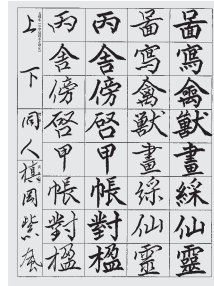 啚寫禽獸畫綵仙靈
啚寫禽獸畫綵仙靈
丙舍傍啓甲帳對楹
丙舍傍啓甲帳對楹
上下 同人 岡紫